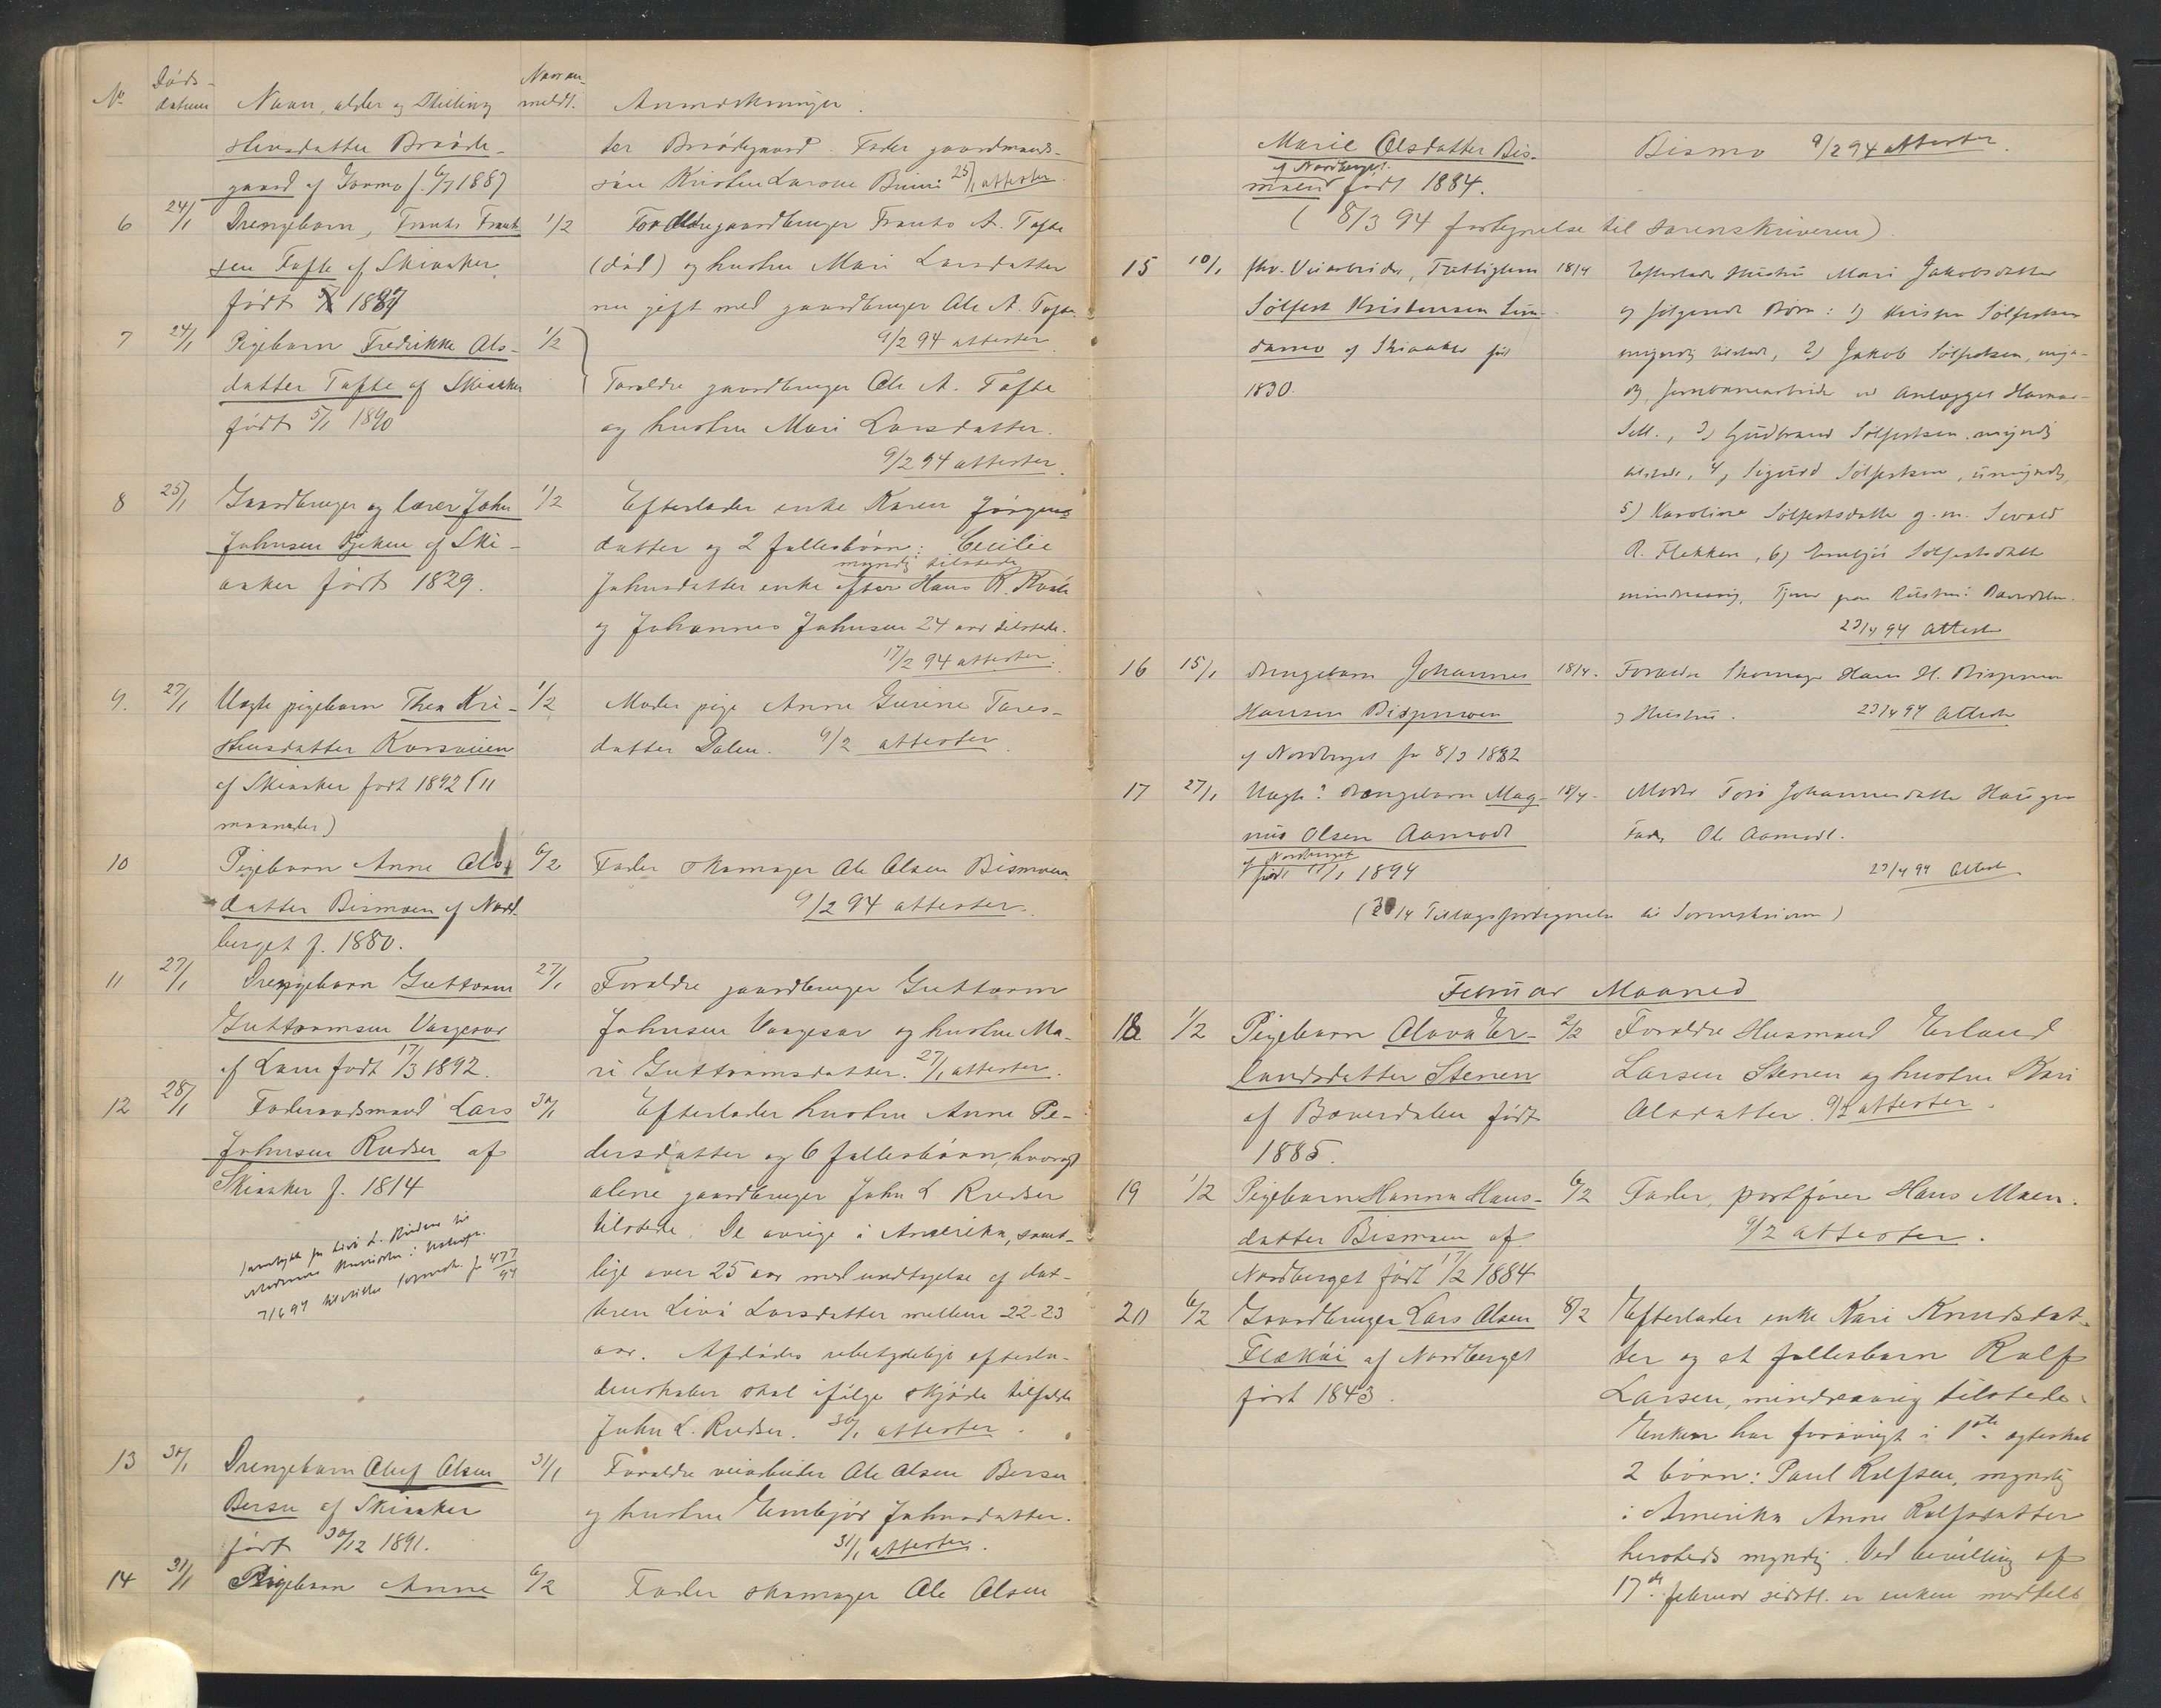 No Døds- datum Navn, alder og Stilling Naar an- meldt. Anmærkninger.
stensdatter Brøøde-
gaard af Gormo f. 6/7 1887
ter Brødegaard. Fader gaardmands-
søn Kristen Larsen Brimi 25/1 attester.
6 24/1 Drengebarn, Frants Frants- 1/2
sen Tafte af Skiaaker
født 1887
Forældre gaardbruger Frants A. Tafte
(død) og hustru Mari Larsdatter
nu gift med gaardbruger Ole A. Tafte.
9/2 94 attester
7 24/1 Pigebarn Fredrikke Ols- 1/2
datter Tafte af Skiaaker
født 5/1 1890
Forældre gaardbruger Ole A. Tafte
og hustru Mari Larsdatter.
9/2 94 attester.
8 25/1 Gaardbruger og lærer John 1/2
Johnsen af Ski-
aaker født 1829.
Efterlader enke Karen Jørgens-
datter og 2 fællesbørn: Cecilie
myndig tilstede
Johnsdatter enke efter Hans R. Kvale
og Johannes Johnsen 24 aar tilstede.
17/2 94 attester.
9. 27/1 Uægte pigebarn Thea Kri- 1/2
stensdatter Korsveien
af Skiaaker født 1892 (11
maaneder)
Moder pige Anne Gurine Tores-
datter Dalen. 9/2 attester.
10 Pigebarn Anne Ols- 6/2
datter Bismoen af Nord-
berget f. 1880.
Fader skomager Ole Olsen Bismoen
9/2 94 attester.
11 27/1 Drengebarn Guttorm 27/1
Guttormsen Vaagesar
af Lom født 17/3 1892.
Forældre gaardbruger Guttorm
Johnsen Vaagesar og hustru Ma-
ri Guttormsdatter. 27/1 attester.
12 28/1 Føderaadsmand Lars 30/1
Johnsen Rudser af
Skiaaker f. 1814
Efterlader hustru Anne Pe-
dersdatter og 6 fællesbørn, hvoraf
alene gaardbruger John L. Rudser
tilstede. De øvrige i Amerika, samt-
lige over 25 aar med undtagelse af dat-
teren Livå Larsdatter mellem 22-23
aar. Afdødes ubetydelige efterla-
denskaber skal ifølge skjøde tilfalde
John L. Rudser. 30/1 attester.
7/6 94
13 30/1 Drengebarn Oluf Olsen 31/1
Bersu af Skiaaker
født 30/12 1891.
Forældre veiarbeider Ole Olsen Bersu
og hustru Embjør Johnsdatter.
31/1 attester.
14 31/1 Pigebarn Anne 6/2 Fader skomager Ole Olsen
Marie Olsdatter Bis-
af Nordberget
moen født 1884.
Bismo 9/2 94 attester.
( 8/3 94 fortegnelse til sorenskriveren)
15 10/1 fhv. Veiarbeider, Fattiglem 18/4
Sølfest Kristensen Lun-
damo af Skiaaker født
1830.
Efterlader Hustru Mari Jakobsdatter
og følgende Børn: 1) Kristen Sølfestsen
myndig tilstede, 2) Jakob Sølfestsen, myn-
dig, Jernbanearbeider ved Anlægget Hamar-
Sell., 3) Gudbrand Sølfestsen, myndig
tilstede, 4) Sigurd Sølfestsen, umyndig,
5) Karoline Sølfestsdatter g. m. Sevald
R. Flekken, 6) Embjør Sølfestsdatter
mindreaarig, Tjener paa
23/4 94 Attest
16 15/1 Drengebarn Johannes 18/4.
Hansen Bispmoen
af Nordberget født 8/3 1892
Forældre Skomager Hans H. Bispmoen
og Hustru. 23/4 94 Attest
17 27/1 Uægte? drengebarn Mag- 18/4.
nus Olsen Aamodt
af Nordberget
født 11/1 1894
Moder Toro Johannesdatter Haugen
Fader Ole Aamodt.
23/4 94 Attest
(30/4 Tillægsfortegnelse til Sorenskriveren)
Februar Maaned
18 1/2 Pigebarn Olava Er- 2/2
landsdatter Stenen
af Bøverdalen født
1885.
Forældre Husmand Erland
Larsen Stenen og hustru Kari
Olsdatter. 9/2 attester.
19 1/2 Pigebarn Hanna Hans- 6/2
datter Bismoen af
Nordberget født 17/2 1884
Fader, postfører Hans Moen.
9/2 attester.
20 6/2 Gaardbruger Lars Olsen 8/2
Flækøi af Nordberget
født 1843.
Efterlader enke Kari Knudsdat-
ter og et fællesbarn Rolf
Larsen, mindreaarig tilstede.
Enken har forøvrigt i 1ste ægteskab
2 børn: Paul Rolfsen, myndig
i Amerika Anne Rolfsdatter
hersteds myndig. Ved bevilling af
17de februar sidstl. er enken meddelt